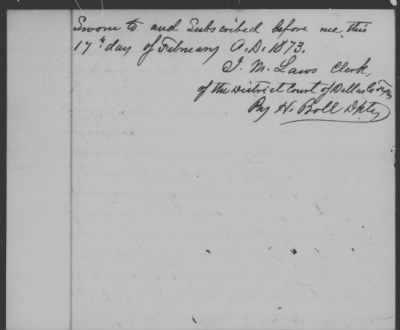 Sworn to and Subscribed before me this
17th day of February A.D. 1873.
J. M. Laws Clerk,
of the District Court of Dallas Co Texas
By H. Boll Dpty